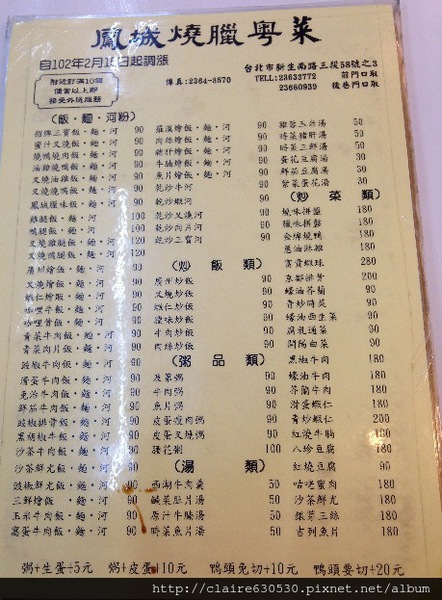 鳳城燒臘粵菜
自102年2月15日起調漲
附近訂滿10個
便當以上即
接受外送服務
傳真:2364-8570
台北市新生南路三段58號之3
TELL:23633772 前門口取
23660939 後巷門口取
(飯·麵·河粉)
招牌三寶飯·麵·河 90
蜜汁叉燒飯·麵·河 90
燒鴨燒肉飯·麵·河 90
油雞燒鴨飯·麵·河 90
叉燒油雞飯·麵·河 90
叉燒燒鴨飯·麵·河 90
鳳城臘味飯·麵·河 90
雞腿飯·麵·河 100
鴨腿飯·麵·河 100
叉燒雞腿飯·麵·河 120
叉燒鴨腿飯·麵·河 120
廣州燴飯·麵·河 90
叉燒燴飯·麵·河 90
蝦仁燴飯·麵·河 90
咖哩牛飯·麵·河 90
咖哩雞飯·麵·河 90
青菜牛肉飯·麵·河 90
青菜肉片飯·麵·河 90
豉椒牛肉飯·麵·河 90
滑蛋牛肉飯·麵·河 90
免治牛肉飯·麵·河 90
鮮茄牛肉飯·麵·河 90
豉椒排骨飯·麵·河 90
黑胡椒牛飯·麵·河 90
沙茶牛肉飯·麵·河 90
沙茶鮮尤飯·麵·河 90
豉椒鮮尤飯·麵·河 90
三鮮燴飯·麵·河 90
玉米牛肉飯·麵·河 90
窩蛋牛肉飯·麵·河 90
羅漢燴飯·麵·河 90
肉絲燴飯·麵·河 90
豬肝燴飯·麵·河 90
牛腩燴飯·麵·河 90
魚片燴飯·麵·河 90
乾炒牛河 90
乾炒蝦河 90
乾炒叉燒河 90
乾炒肉片河 90
乾炒三寶河 90
(炒飯類)
廣州炒飯 90
叉燒炒飯 90
蝦仁炒飯 90
臘味炒飯 90
牛肉炒飯 90
肉絲炒飯 90
(粥品類)
及第粥 90
牛肉粥 90
魚片粥 90
皮蛋瘦肉粥 90
皮蛋叉燒粥 90
腰花粥 100
(湯類)
西湖牛肉羹 50
鹹菜肚片湯 50
原汁牛腩湯 50
時菜魚片湯 50
雜菜玉片湯 50
時菜豬肝湯 50
時菜三鮮湯 50
蛋花豆腐湯 30
鮮茄豆腐湯 30
紫菜蛋花湯 30
(炒菜類)
燒味拼盤 180
臘味拼盤 180
金牌燒鴨 180
蔥油淋雞 180
富貴蝦球 280
京都排骨 200
蠔油芥蘭 90
清炒時菜 90
蠔油西生菜 90
腐乳通菜 90
開陽白菜 90
黑椒牛肉 180
蠔油牛肉 180
芥蘭牛肉 180
滑蛋蝦仁 180
青炒蝦仁 180
紅燒牛腩 180
八珍豆腐 180
紅燒豆腐 90
咕咾蜜肉 180
沙茶鮮尤 180
銀芽三絲 180
古列魚片 180
粥+生蛋+5元 粥+皮蛋+10元 鴨頭免切+10元 鴨頭要切+20元
http://claire630530.pixnet.net/album